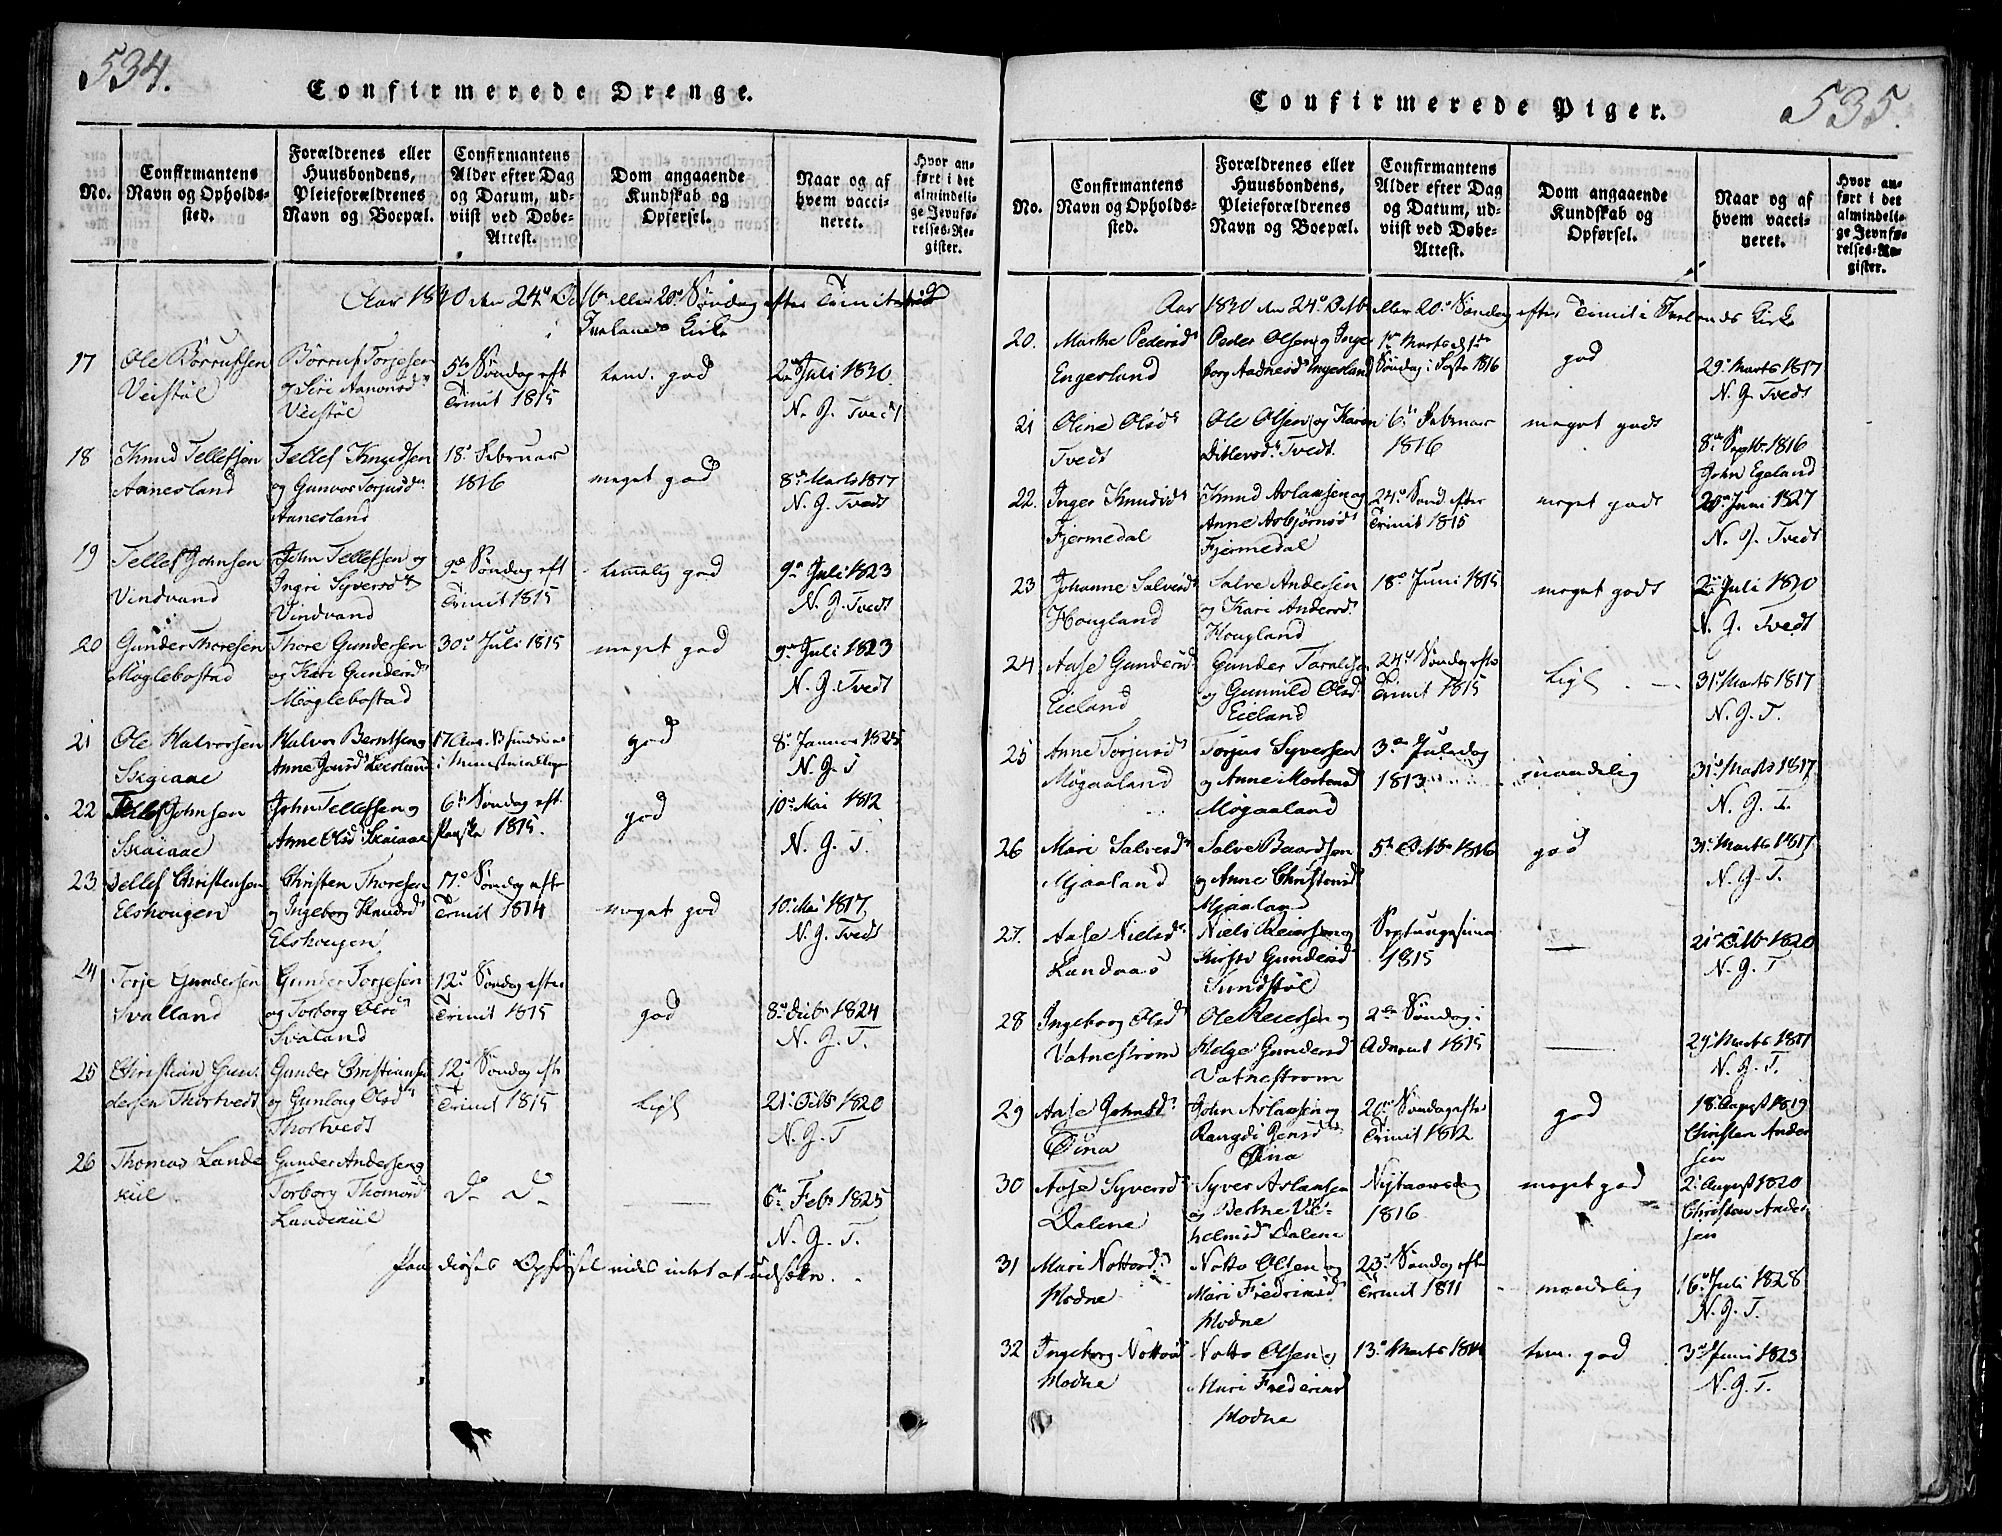 534.
Confirmerede Drenge.
No.
Confirmantens
Navn og Opholds-
sted.
Forældrenes eller
Huusbondens,
Pleieforældrenes
Navn og Boepæl.
Confirmantens
Alder efter Dag
og Datum, ud-
viist ved Døbe-
Attest.
Dom angaaende
Kundskab og
Opførsel.
Naar og af
hvem vacci-
neret.
Hvor an-
ført i det
almindeli-
ge Jevnfø-
relses-Re-
gister.
Aar 1830 den 24de Octbr eller 20de Søndag efter Trinitatis
i Ivelands Kirke
17
Ole Børrufsen
Veistøl
Børruf Torjesen
og Siri Aanonsd.
Veistøl
5te Søndag eft
Trinit 1815
tem. god
2den Juli 1830.
N. G. Tvedt
18
Knud Tellefsøn
Aanesland
Tellef Knudsen
og Gunvor Torjusd.
Aanesland
18de Februar
1816
meget god
8de Marts 1817
N. G. Tvedt
19
Tellef Johnsen
Vindvand
John Tellefsen og
Ingri Syversd.
Vindvand
9de Søndag eft
Trinit 1815
temmelig god
9de Juli 1823
N. G. Tvedt
20
Gunder Thoresen
Møglebostad
Thore Gundersen
og Kari Gundersd.
Møglebostad
30de Juli 1815
meget god
9de Juli 1823
N. G. Tvedt
21
Ole Halvorsen
Skaiaae
Halvor Berntsen og
Anne Jensd.
god
8de Januar 1825
N. G. T
22
Tellef Johnsen
Skaiaae
John Tellefsen og
Anne Olsd. Skaiaae
6te Søndag eft.
Paaske 1815.
god
10de Mai 1812
N. G. T.
23.
Tellef Christensen
Elshougen
Christen Thoresen
og Ingeborg Knudsd.
Elshougen
17de Søndag eft
Trinit 1814
meget god
10de Mai 1817
N. G. Tvedt
24
Torje Gundersen
Svalland
Gunder Torjesen
og Torborg Olsd.
Svaland
12de Søndag efter
Trinit 1815
god
8de 1824
N. G. T.
25
Christian Gun-
dersen Thortvedt
Gunder Christiansen
og Gunloug Olsd.
Thortvedt
12te Søndag eft
Trinit 1815
Ligl
21de Octbr 1820
N. G. T
26
Thomas Lande-
kiil
Gunder Andersen og
Torborg Thomasd.
Landekiil
Do Do
—
6te Febr 1825
N. G. T.
Paa disses Opførsel vides intet at udsætte.
535.
Confirmerede Piger.
No.
Confirmantens
Navn og Opholds-
sted.
Forældrenes eller
Huusbondens,
Pleieforældrenes
Navn og Boepæl.
Confirmantens
Alder efter Dag
og Datum, ud-
viist ved Døbe-
Attest.
Dom angaaende
Kundskab og
Opførsel.
Naar og af
hvem vacci-
neret.
Hvor an-
ført i det
almindeli-
ge Jevnfø-
relses-Re-
gister.
Aar 1830 den 24de Octb eller 20de Søndag efter Trinit i Ivelands Kirke
20.
Marthe Pedersd.
Engesland
Peder Olsen og Inge-
borg Aadnesd. Engesland
Søndag i Faste 1816
god
29de Marts 1817
N. G. Tvedt
21
Oline Olsd.
Tvedt
Ole Olsen og Karen
Ditlevsd. Tvedt.
6te Februar
1816
meget godt
8de Septbr 1816
John Egeland
22.
Inger Knudsd.
Fjermedal
Knud Aslaksen og
Anne Asbjørnsd.
Fjermedal
24de Sønd. efter
Trinit 1815
meget godt
20de Juni 1827
N. G. Tvedt
23
Johanne Salvesd.
Hougland
Salve Andersen
og Kari Andersd.
Hougland
18de Juni 1815
meget godt
2den Juli 1830
N. G. Tvedt
24
Aase Gundersd.
Eieland
Gunder Taraldsen
og Gunnild Olsd.
Eieland
24de Søndag eft
Trinit 1815
Ligl. —
31de Marts 1817
N. G. T.
25
Anne Torjusd.
Møgaaland
Torjus Syversen
og Anne Mortensd.
Møgaaland
3die Juledag
1813
maadelig
31de Marts 1817
N. G. T.
26
Mari Salvesd.
Mjaaland
Salve Baardsen
og Anne Christensd.
Mjaaland
5te Octbr 1816
god
31de Marts 1817
N. G. T.
27.
Aase Nielsd.
Landaas
Niels Reiersen og
Kirsti Gundersd.
Sundstøl
Septuagesima
1815
—
21de Octb 1820
N. G. T
28
Ingeborg Olsd.
Vatnestrøm
Ole Reiersen og
Helge Gundersd.
Vatnestrøm
2den Søndag i
Advent 1815
—
29de Marts 1817
N. G. T.
29
Aase Johnsd.
Øina
John Aslaksen og
Rangdi Jensd.
Øina
20de Søndag efter
Trinit 1812
god
18de August 1819
Christen Ander-
sen
30
Aase Syversd.
Dalene
Syver Aslaksen
og Berthe Vil-
helmsd. Dalene
Nytaarsdag
1816
meget god
2den August 1820
Christen Ander-
sen
31
Mari Nottosd.
Hodne
Notto Olsen og
Mari Fredriksd.
Hodne
23de Søndag eft
Trinit 1811
maadelig
16de Juli 1828
N. G. T.
32
Ingeborg Nottosd.
Hodne
Notto Olsen og
Mari Frederiksd.
Hodne
13de Marts 1814
tem. god
3die Juni 1823
N. G. T.